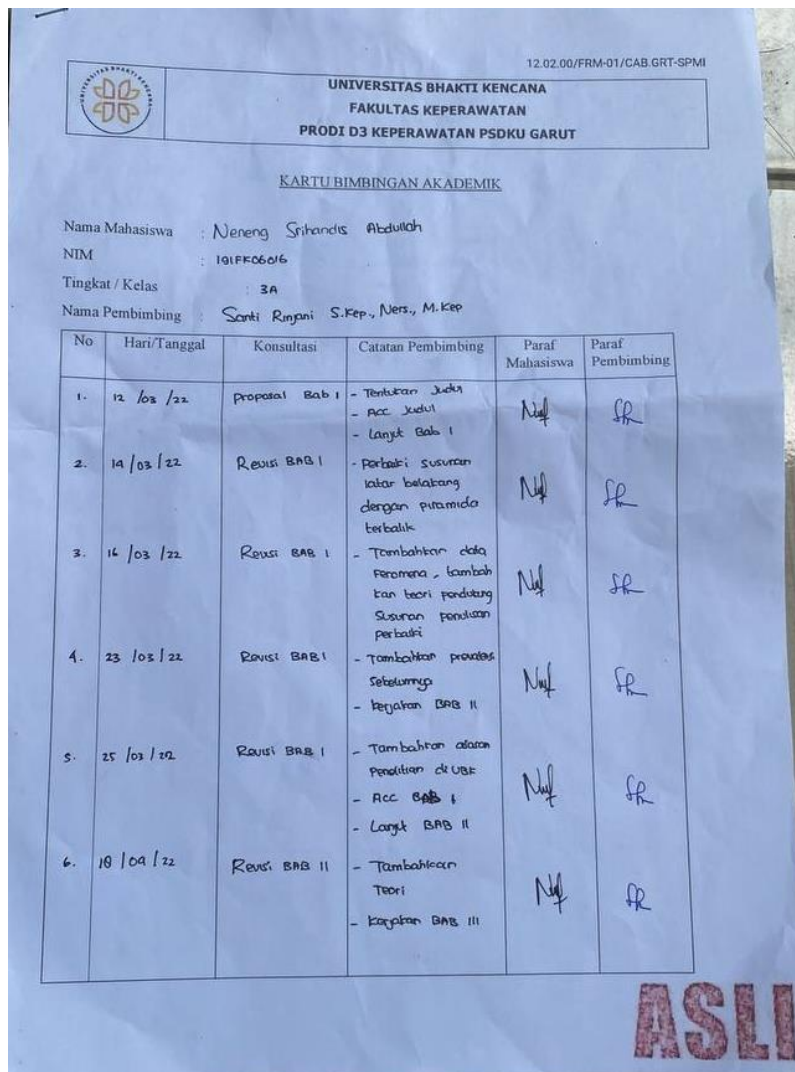 12.02.00/FRM-01/CAB.GRT-SPMI
UNIVERSITAS BHAKTI KENCANA
UNIVERSITAS BHAKTI KENCANA
FAKULTAS KEPERAWATAN
PRODI D3 KEPERAWATAN PSDKU GARUT
KARTU BIMBINGAN AKADEMIK
Nama Mahasiswa : Neneng Srihandis Abdullah
NIM : 191FK06016
Tingkat / Kelas : 3A
Nama Pembimbing : Santi Rinjani S.Kep., Ners., M.Kep
No Hari/Tanggal Konsultasi Catatan Pembimbing Paraf Mahasiswa Paraf Pembimbing
1. 12 /03 /22 Proposal Bab 1 - Tentukan Judul
- Acc Judul
- Lanjut Bab 1
2. 14/03/22 Revisi BAB 1 - Perbaiki susunan
latar belakang
dengan piramida
terbalik
3. 16 /03 /22 Revisi BAB 1 - Tambahkan data
Fenomena, tambah
kan teori pendukung
Susunan penulisan
perbaiki
4. 23 /03/22 Revisi BAB 1 - Tambahkan
Sebelumnya
- kerjakan BAB II
5. 25 /03 / 22 Revisi BAB 1 - Tambahkan alasan
Penelitian di UBK
- Acc BAB 1
- Lanjut BAB II
6. 18 /04 /22 Revisi BAB II - Tambahkan
Teori
- kerjakan BAB III
ASLI